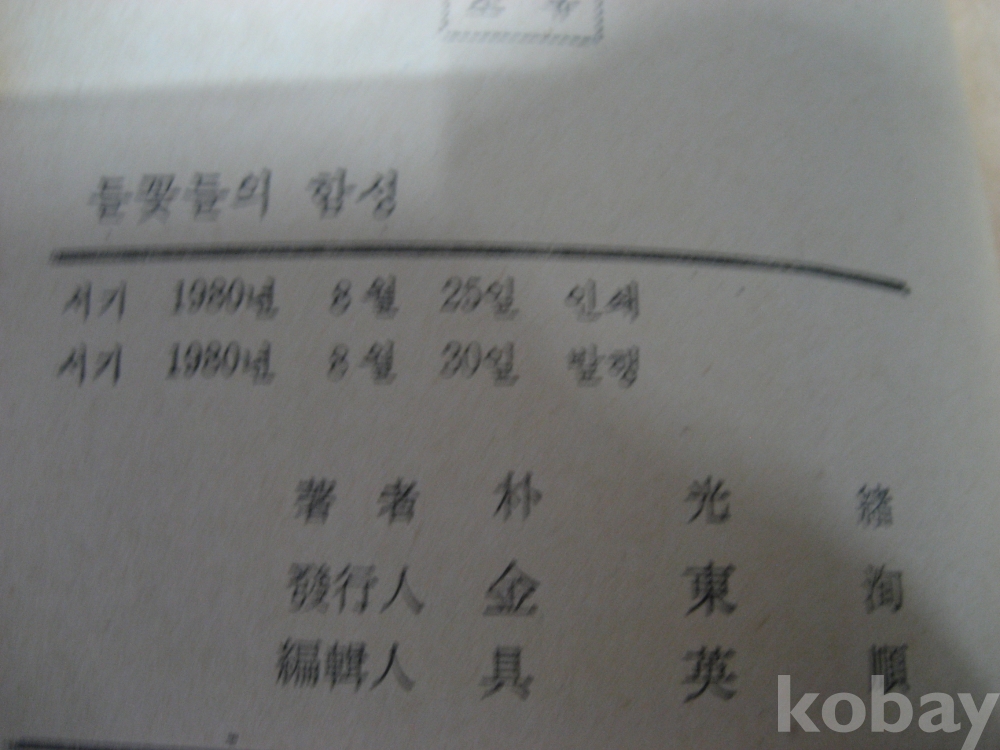 들꽃들의 함성
서기 1980년 8월 25일 인쇄
서기 1980년 8월 30일 발행
著者 朴光緖
發行人 金東洵
編輯人 具英順
kobay